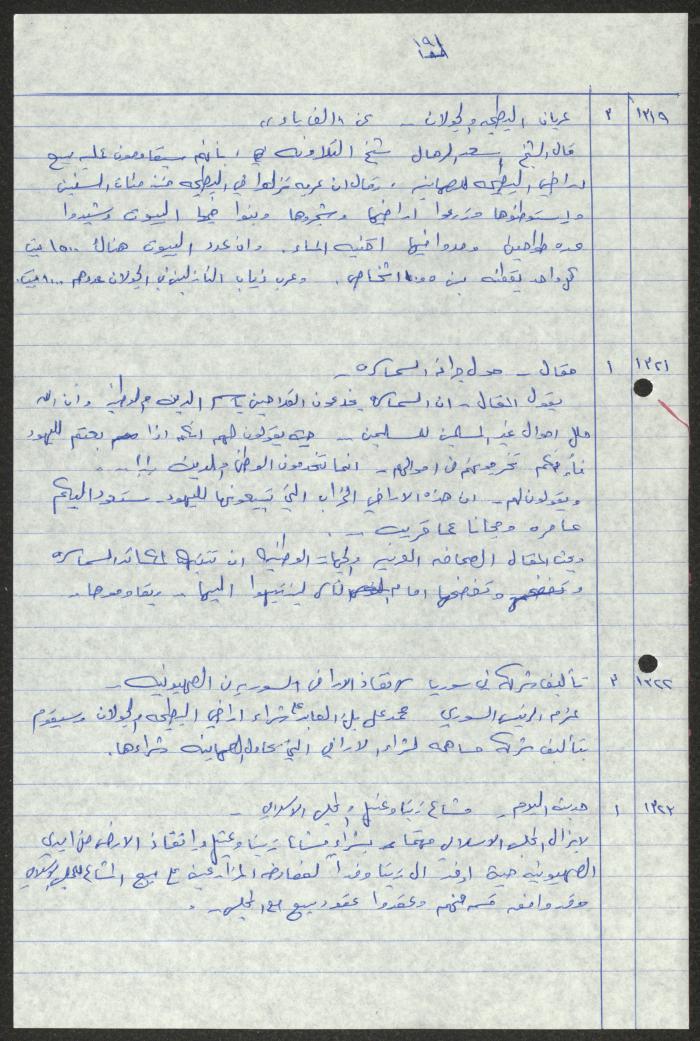 ١٩١
١٣١٩ ٢ عربان البطيحه والجولان - عن «الف باء»
قال الشيخ اسعد الرحال شيخ التلاويه بأنهم سيقاومون عملية بيع
اراضي البطيحه للصهاينه، وقال ان عربه نزلوا في البطيحه منذ مئات السنين
واستوطنوها وزرعوا اراضيها وشجروها وبنوا فيها البيوت وشيدوا
عدة طواحين ومدوا فيها اقنية الماء. وان عدد البيوت هناك ١٥٠٠ بيت
كل واحد يقطنه بين اشخاص. وعرب ذياب النازلين في الجولان عددهم ٨٠٠ بيت.
١٣٢١ ١ مقال - حول جرائد السماسره -
يقول المقال - ان السماسره يخدعون الفلاحين باسم الدين والوطنية وان الله
حلل اموال غير المسلمين للمسلمين - حيث يقولون لهم انكم اذا بعتم لليهود
فأرضكم تخرجونهم من اموالهم - انما تخدمون الوطن والدين !! - .
ويقولون لهم - ان هذه الاراضي الخراب التي تبيعونها لليهود - ستعود اليكم
عامره ومجانا عما قريب - .
ويحث المقال الصحافه العربيه والجهات الوطنيه ان تنتبه لمكائد السماسره
وتفضحها امام الناس لينتبهوا اليها - ويقاوموها -
١٣٢٢ ٣ تأليف شركة في سوريا لانقاذ الاراضي السوريه من الصهيونيه -
عزم الرئيس السوري محمد علي بك العابد على شراء اراضي البطيحه والجولان وسيقوم
بتأليف شركة مساهمه لشراء الاراضي التي يحاول الصهاينه شراءها.
١٣٢٣ ١ حديث اليوم - مشاع زيتا وعتيل والمجلس الاسلامي -
لا يزال المجلس الاسلامي مهتما بشراء مشاع زيتا وعتيل وانقاذ الارض من ايدي
الصهيونيه حيث اوفد الى زيتا وفدا لمفاوضة المزارعين على بيع المشاع للمجلس الاسلامي
وقد وافق قسم منهم وعقدوا عقود بيع مع المجلس - .